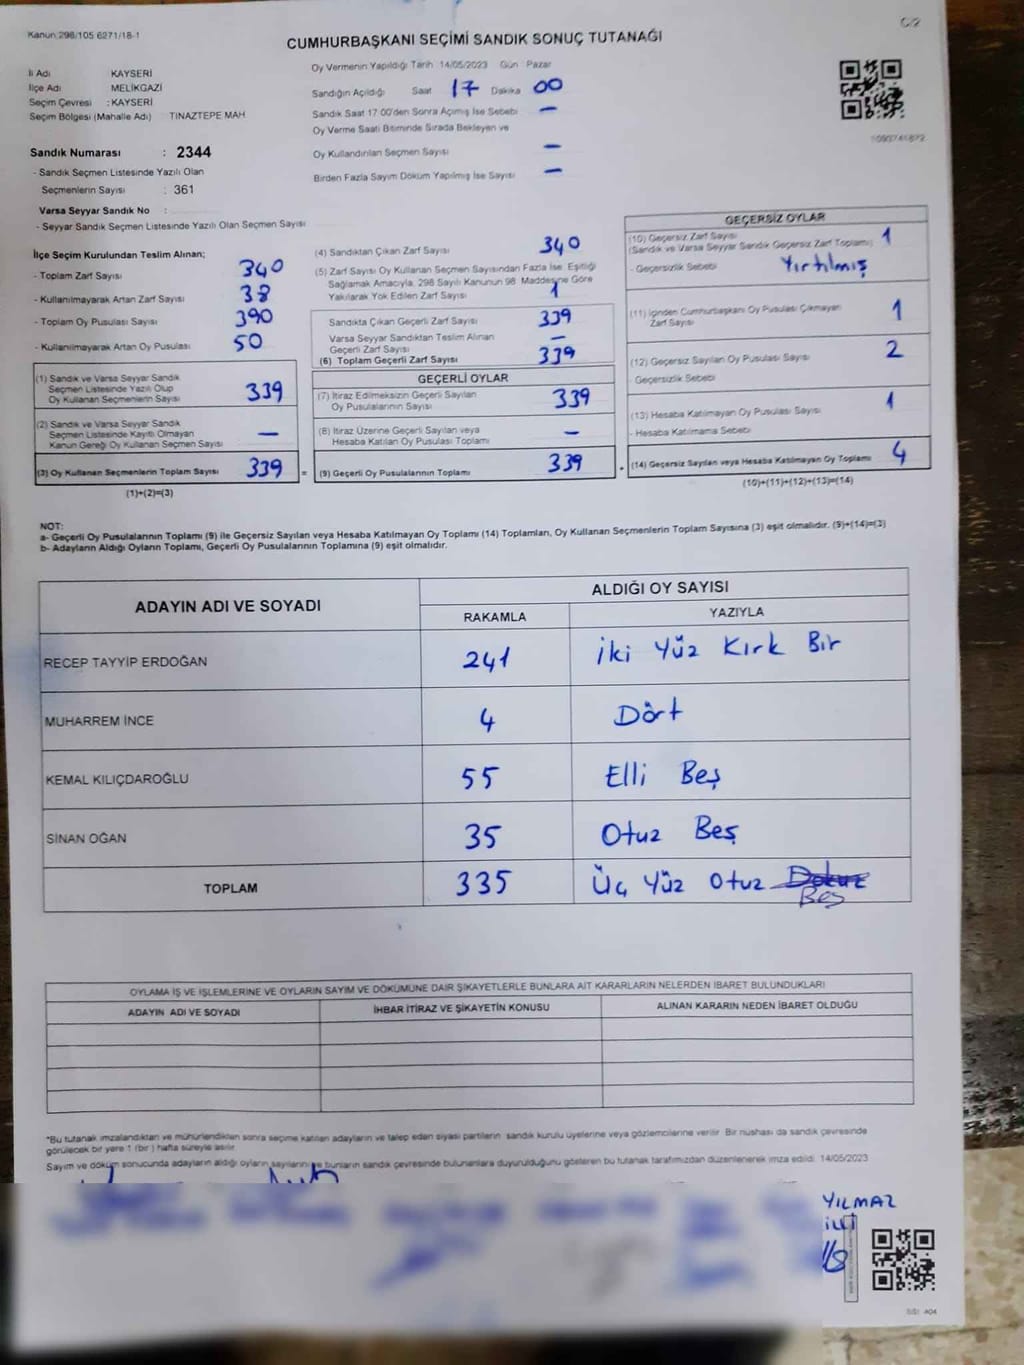 Kanun:298/105 6271/18-1
C/2
CUMHURBAŞKANI SEÇİMİ SANDIK SONUÇ TUTANAĞI
İl Adı KAYSERİ
İlçe Adı MELİKGAZİ
Seçim Çevresi : KAYSERİ
Seçim Bölgesi (Mahalle Adı) TINAZTEPE MAH
Sandık Numarası : 2344
- Sandık Seçmen Listesinde Yazılı Olan
Seçmenlerin Sayısı : 361
Varsa Seyyar Sandık No :
- Seyyar Sandık Seçmen Listesinde Yazılı Olan Seçmen Sayısı
Oy Vermenin Yapıldığı Tarih 14/05/2023 Gün Pazar
Sandığın Açıldığı Saat 17 Dakika 00
Sandık Saat 17.00'den Sonra Açılmış İse Sebebi –
Oy Verme Saati Bitiminde Sırada Bekleyen ve
Oy Kullandırılan Seçmen Sayısı –
Birden Fazla Sayım Döküm Yapılmış İse Sayısı –
İlçe Seçim Kurulundan Teslim Alınan;
- Toplam Zarf Sayısı 340
- Kullanılmayarak Artan Zarf Sayısı 38
- Toplam Oy Pusulası Sayısı 390
- Kullanılmayarak Artan Oy Pusulası 50
(1) Sandık ve Varsa Seyyar Sandık
Seçmen Listesinde Yazılı Olup
Oy Kullanan Seçmenlerin Sayısı 339
(2) Sandık ve Varsa Seyyar Sandık
Seçmen Listesinde Kayıtlı Olmayan
Kanun Gereği Oy Kullanan Seçmen Sayısı –
(3) Oy Kullanan Seçmenlerin Toplam Sayısı 339 =
(1)+(2)=(3)
(4) Sandıktan Çıkan Zarf Sayısı 340
(5) Zarf Sayısı Oy Kullanan Seçmen Sayısından Fazla İse, Eşitliği
Sağlamak Amacıyla, 298 Sayılı Kanunun 98. Maddesine Göre
Yakılarak Yok Edilen Zarf Sayısı 1
Sandıkta Çıkan Geçerli Zarf Sayısı 339
Varsa Seyyar Sandıktan Teslim Alınan
Geçerli Zarf Sayısı –
(6) Toplam Geçerli Zarf Sayısı 339
GEÇERLİ OYLAR
(7) İtiraz Edilmeksizin Geçerli Sayılan
Oy Pusulalarının Sayısı 339
(8) İtiraz Üzerine Geçerli Sayılan veya
Hesaba Katılan Oy Pusulası Toplamı –
(9) Geçerli Oy Pusulalarının Toplamı 339 +
GEÇERSİZ OYLAR
(10) Geçersiz Zarf Sayısı 1
(Sandık ve Varsa Seyyar Sandık Geçersiz Zarf Toplamı)
- Geçersizlik Sebebi Yırtılmış
(11) İçinden Cumhurbaşkanı Oy Pusulası Çıkmayan
Zarf Sayısı 1
(12) Geçersiz Sayılan Oy Pusulası Sayısı 2
- Geçersizlik Sebebi
(13) Hesaba Katılmayan Oy Pusulası Sayısı 1
- Hesaba Katılmama Sebebi
(14) Geçersiz Sayılan veya Hesaba Katılmayan Oy Toplamı 4
(10)+(11)+(12)+(13)=(14)
NOT:
a- Geçerli Oy Pusulalarının Toplamı (9) ile Geçersiz Sayılan veya Hesaba Katılmayan Oy Toplamı (14) Toplamları, Oy Kullanan Seçmenlerin Toplam Sayısına (3) eşit olmalıdır. (9)+(14)=(3)
b- Adayların Aldığı Oyların Toplamı, Geçerli Oy Pusulalarının Toplamına (9) eşit olmalıdır.
ADAYIN ADI VE SOYADI
ALDIĞI OY SAYISI
RAKAMLA YAZIYLA
RECEP TAYYİP ERDOĞAN 241 İki Yüz Kırk Bir
MUHARREM İNCE 4 Dört
KEMAL KILIÇDAROĞLU 55 Elli Beş
SİNAN OĞAN 35 Otuz Beş
TOPLAM 335 Üç Yüz Otuz Dokuz
Beş
OYLAMA İŞ VE İŞLEMLERİNE VE OYLARIN SAYIM VE DÖKÜMÜNE DAİR ŞİKAYETLERLE BUNLARA AİT KARARLARIN NELERDEN İBARET BULUNDUKLARI
ADAYIN ADI VE SOYADI İHBAR İTİRAZ VE ŞİKAYETİN KONUSU ALINAN KARARIN NEDEN İBARET OLDUĞU
*Bu tutanak imzalandıktan ve mühürlendikten sonra seçime katılan adayların ve talep eden siyasi partilerin sandık kurulu üyelerine veya gözlemcilerine verilir. Bir nüshası da sandık çevresinde
görülecek bir yere 1 (bir) hafta süreyle asılır.
Sayım ve döküm sonucunda adayların aldığı oyların sayılarını ve bunların sandık çevresinde bulunanlara duyurulduğunu gösteren bu tutanak tarafımızdan düzenlenerek imza edildi. 14/05/2023
YILMAZ